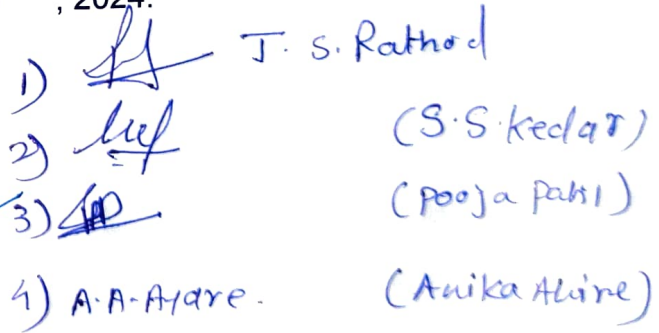 , 2024.
1) J. S. Rathod
2) (S.S. kedar)
3) (Pooja Patil)
4) A.A. (Anika